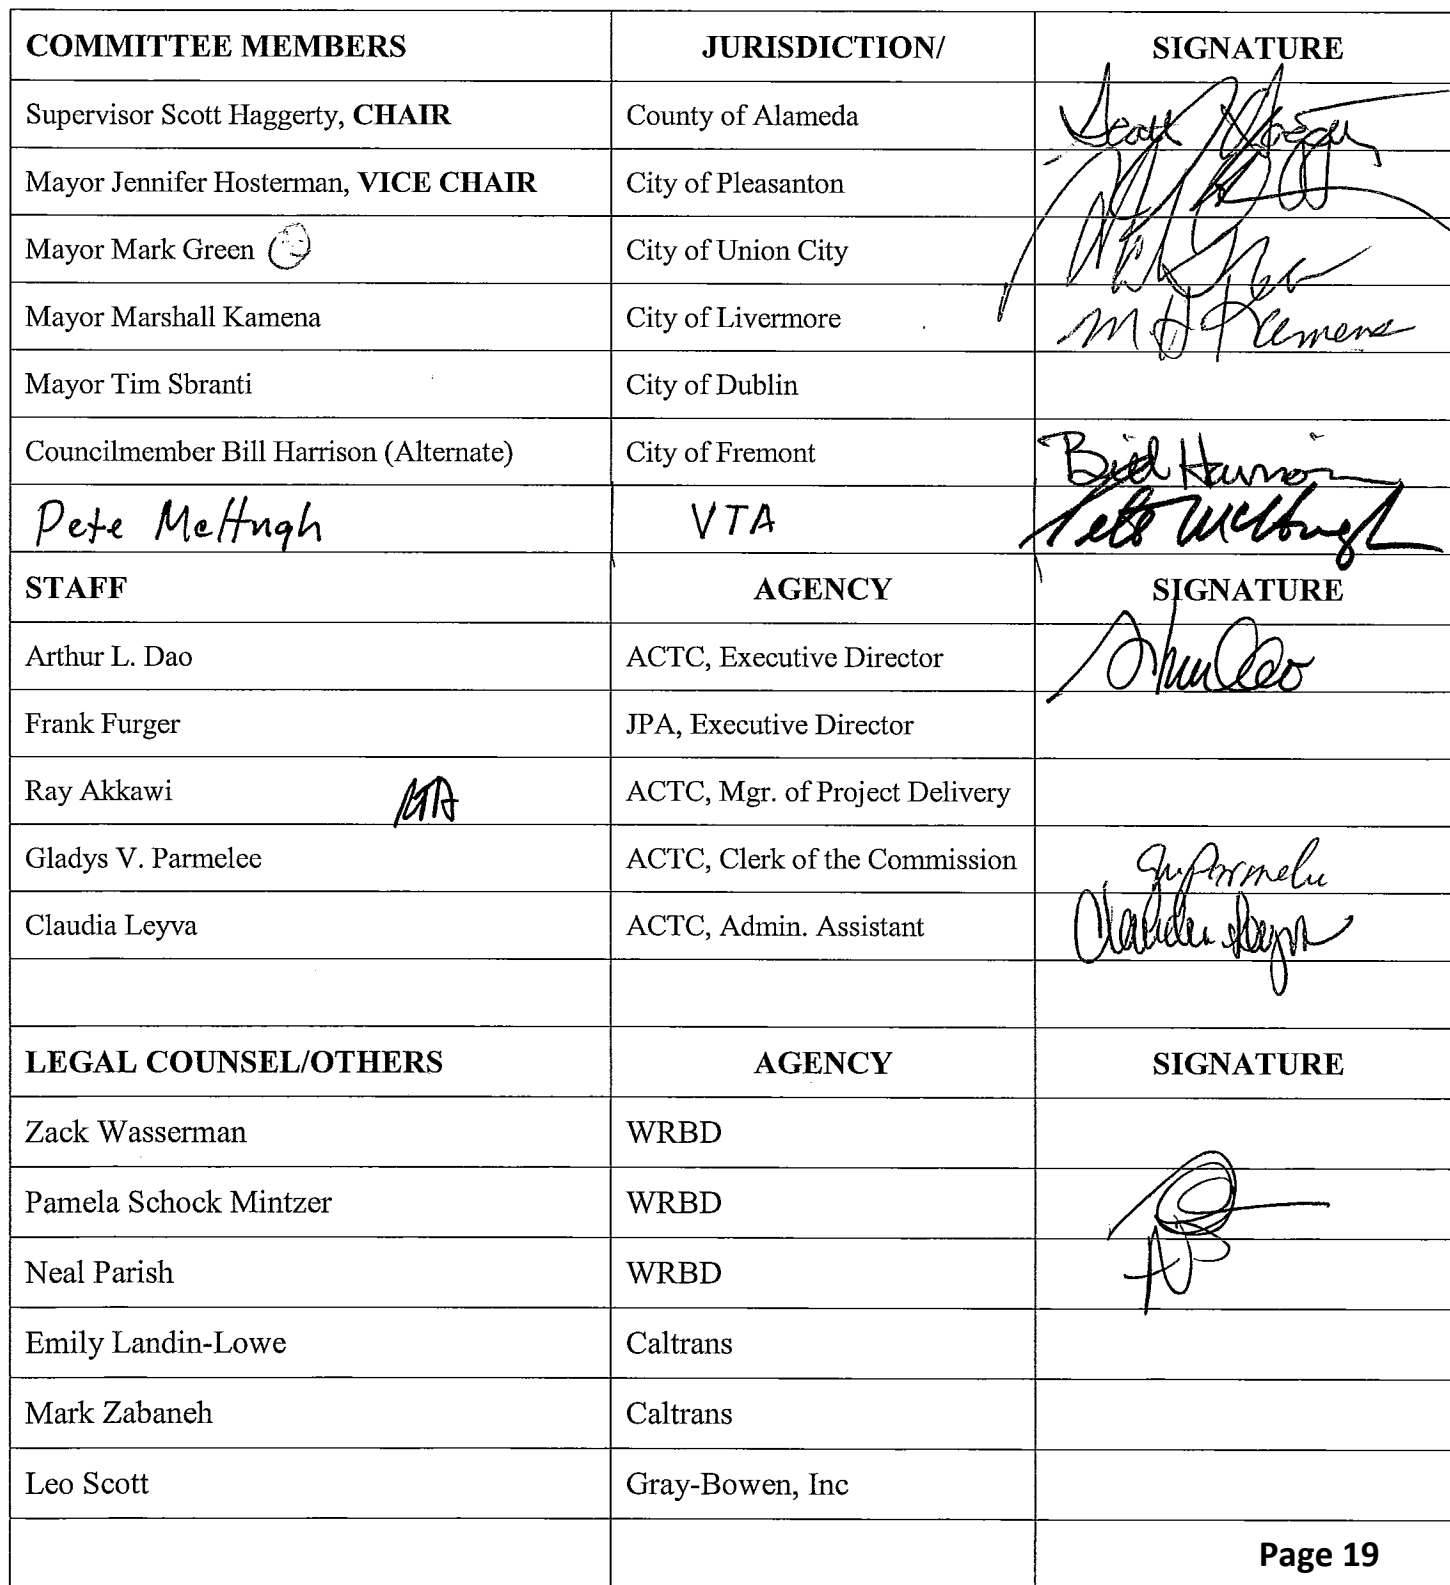 COMMITTEE MEMBERS JURISDICTION/ SIGNATURE
Supervisor Scott Haggerty, CHAIR County of Alameda Scott Haggerty
Mayor Jennifer Hosterman, VICE CHAIR City of Pleasanton
Mayor Mark Green City of Union City
Mayor Marshall Kamena City of Livermore M H Kamena
Mayor Tim Sbranti City of Dublin
Councilmember Bill Harrison (Alternate) City of Fremont Bill Harrison
Pete McHugh VTA Pete McHugh
STAFF AGENCY SIGNATURE
Arthur L. Dao ACTC, Executive Director
Frank Furger JPA, Executive Director
Ray Akkawi ACTC, Mgr. of Project Delivery
Gladys V. Parmelee ACTC, Clerk of the Commission
Claudia Leyva ACTC, Admin. Assistant Claudia Leyva
LEGAL COUNSEL/OTHERS AGENCY SIGNATURE
Zack Wasserman WRBD
Pamela Schock Mintzer WRBD
Neal Parish WRBD
Emily Landin-Lowe Caltrans
Mark Zabaneh Caltrans
Leo Scott Gray-Bowen, Inc
Page 19